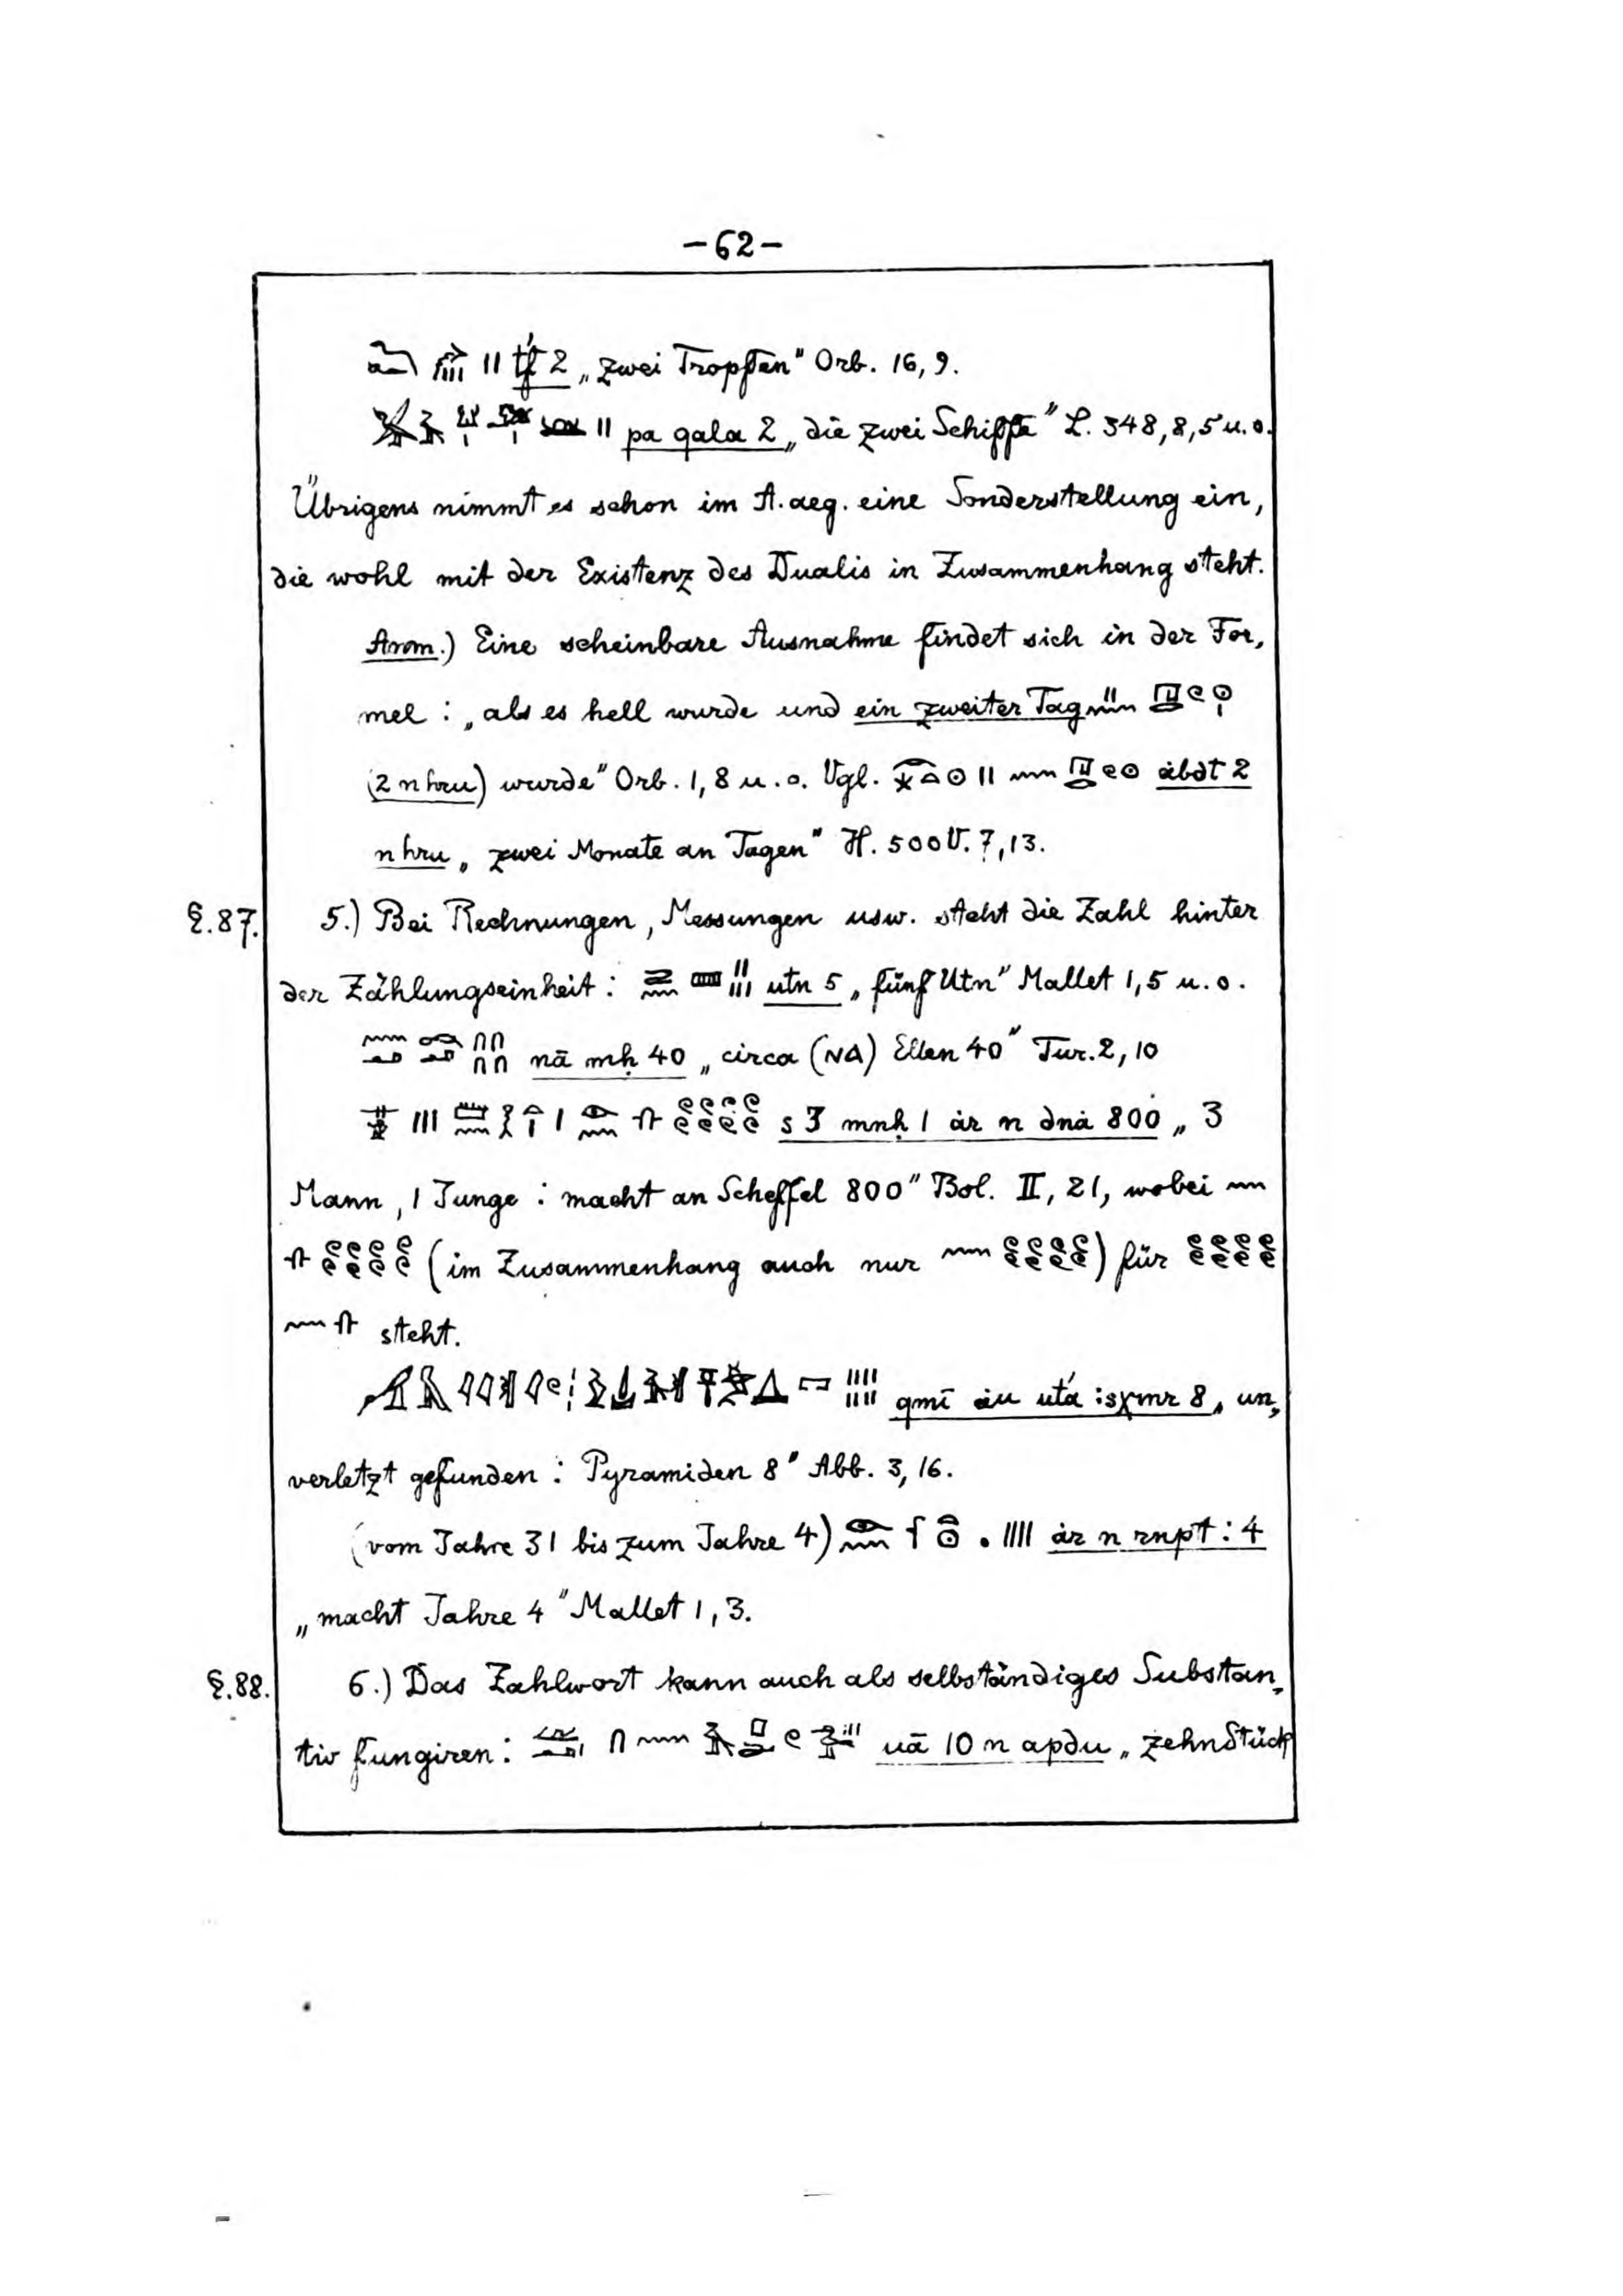 -62-
II tf́ 2 „zwei Tropfen" Orb. 16, 9.
II pa qala 2 „die zwei Schiffe" L. 348, 8, 5 u. o.
Übrigens nimmt es schon im A. aeg. eine Sonderstellung ein,
die wohl mit der Existenz des Dualis in Zusammenhang steht.
Anm.) Eine scheinbare Ausnahme findet sich in der For,
mel : „als es hell wurde und ein zweiter Tag
(2 n hru) wurde" Orb. 1, 8 u. o. Vgl. II ȧbdt 2
n hru „zwei Monate an Tagen" H. 500 V. 7, 13.
§. 87. 5.) Bei Rechnungen, Messungen usw. steht die Zahl hinter
der Zählungseinheit : utn 5 „fünf Utn" Mallet 1, 5 u. o.
∩∩∩∩ nā mḥ 40 „circa (NA) Ellen 40" Tur. 2, 10
III I s 3 mnḥ 1 ȧr n dnȧ 800 „3
Mann, 1 Junge : macht an Scheffel 800" Bol. II, 21, wobei
(im Zusammenhang auch nur ) für
steht.
qmī ȧu ut́a : sχmr 8 „un,
verletzt gefunden : Pyramiden 8" Abb. 3, 16.
(vom Jahre 31 bis zum Jahre 4) • IIII ȧr n rnpt : 4
„macht Jahre 4" Mallet 1, 3.
§. 88. 6.) Das Zahlwort kann auch als selbständiges Substan,
tiv fungiren : ∩ uā 10 n apdu „zehn Stück